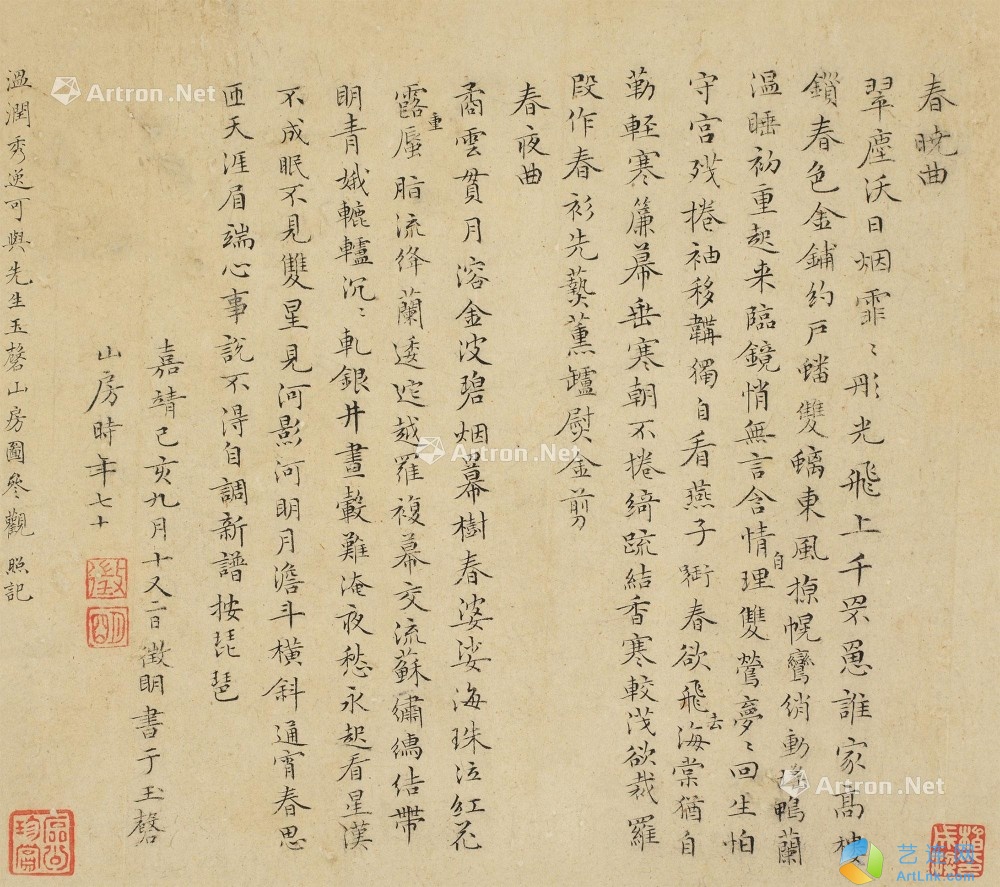 春曉曲
翠塵沃日烟霏〻彤光飛上千罘罳誰家高樓
鎖春色金鋪約戶蟠雙螭東風掠幌鸞綃動瑤鴨蘭
溫睡初重起来臨鏡悄無言含情自理雙鶯夢〻回生怕
守宮殘捲袖移韝獨自看燕子銜春欲飛去海棠猶自
勒輕寒簾幕垂寒朝不捲綺疏結香寒較淺欲裁羅
段作春衫先爇薰鑪熨金剪
春夜曲
矞雲貫月溶金波碧烟羃樹春婆娑海珠泣紅花
露重蜃脂流絳蘭逶迤越羅複幕交流蘇繡儔結帶
明青娥轆轤沉〻軋銀井畫轂難淹夜愁永起看星漢
不成眠不見雙星見河影河明月澹斗橫斜通宵春思
匝天涯眉端心事說不得自調新譜按琵琶
嘉靖己亥九月十又二日徵明書于玉磬
山房時年七十
徵
明
溫潤秀逸可與先生玉磬山房圖參觀 照記
Artron.Net
Artron.Net
Artron.Net
艺连网
ArtLink.com